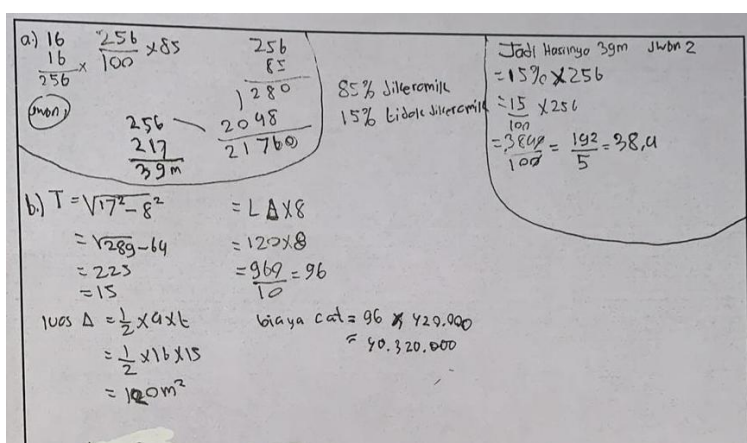 a.) 16
16 ×
256
256/100 × 85
Jwbn 1
256
85
1280
2048
21760
256
217
39m
85% dikeramik
15% tidak dikeramik
Jadi Hasilnya 39m Jwbn 2
= 15% × 256
= 15/100 × 256
= 3840/100 = 192/5 = 38,4
b.) T = √17² - 8²
= √289 - 64
= 225
= 15
luas Δ = 1/2 × a × t
= 1/2 × 16 × 15
= 120m²
= L Δ × 8
= 120 × 8
= 960/10 = 96
biaya cat = 96 × 420.000
= 40.320.000